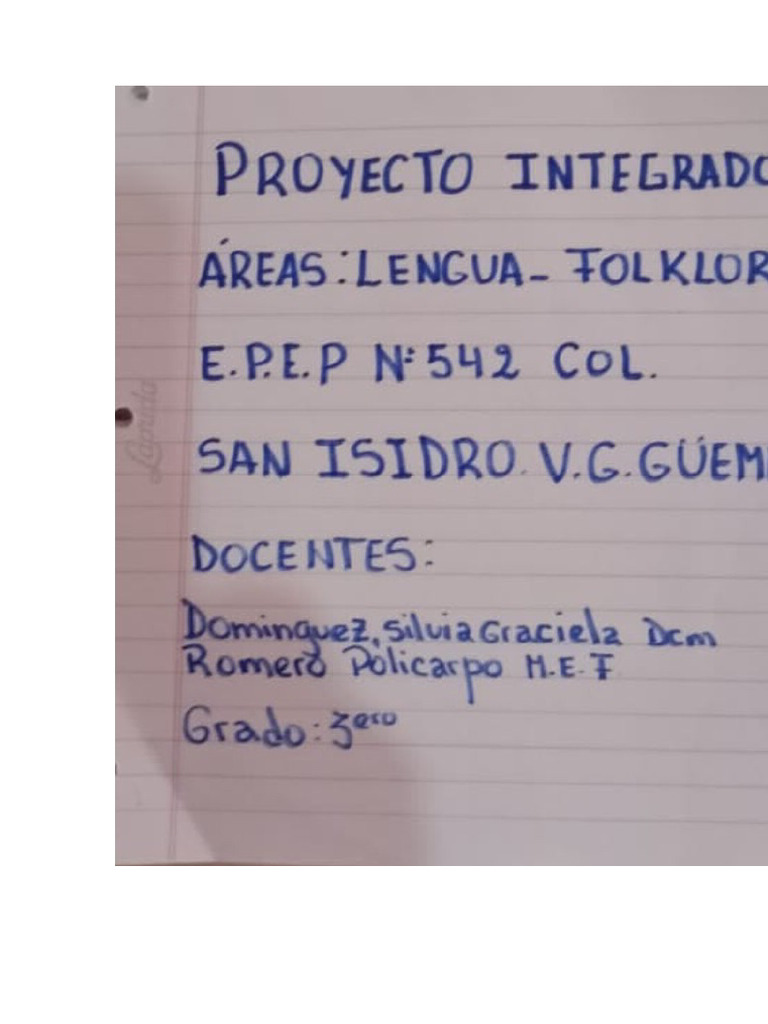 PROYECTO INTEGRADO
ÁREAS: LENGUA - FOLKLOR
E.P.E.P Nº 542 COL.
SAN ISIDRO. V.G. GÜEM
DOCENTES:
Dominguez, Silvia Graciela Dcm
Romero Policarpo M.E.F
Grado: 3ero
Laprida